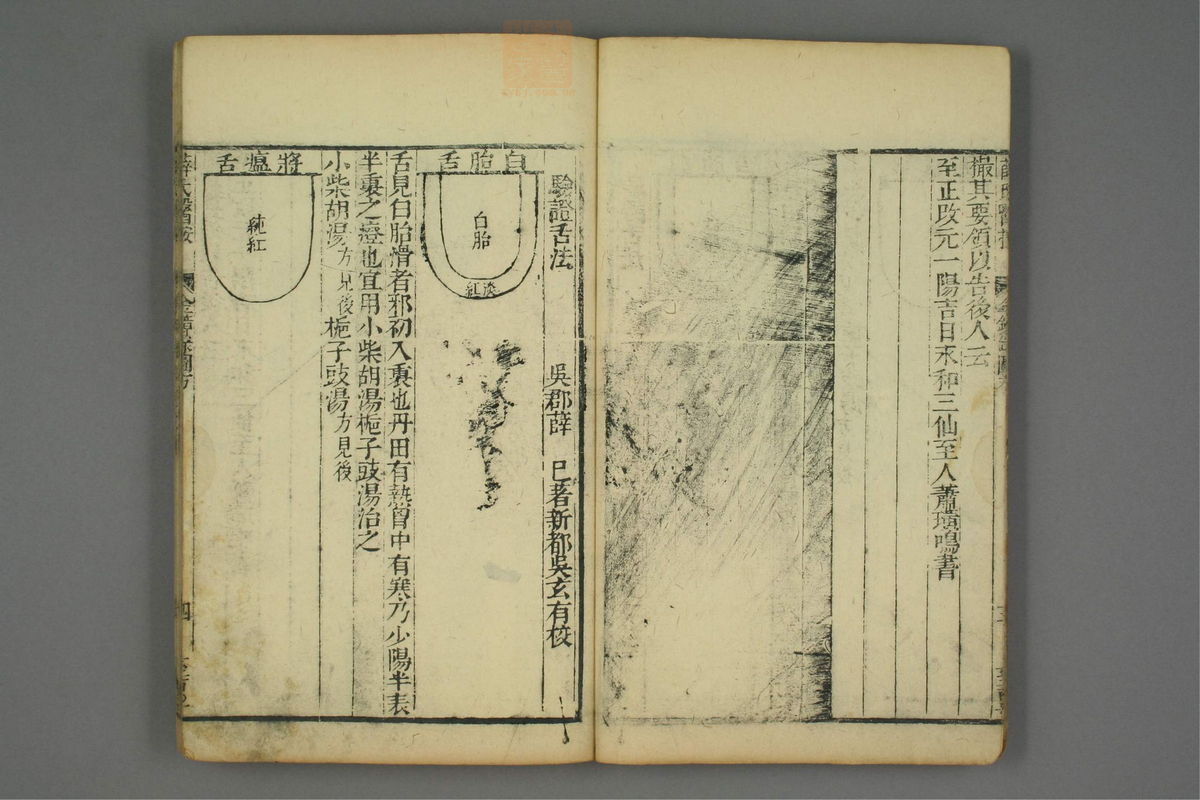 撮其要領以告後人云
至正改元一陽吉日承和三仙至人蕭璜鳴書
驗證舌法
吳郡薛　巳著新都吳玄有校
白胎舌
白胎
淡紅
舌見白胎滑者邪初入裏也丹田有熱胷中有寒乃少陽半表
半裏之證也宜用小柴胡湯梔子豉湯治之
小柴胡湯方見後梔子豉湯方見後
將瘟舌
純紅
薛氏醫按
四